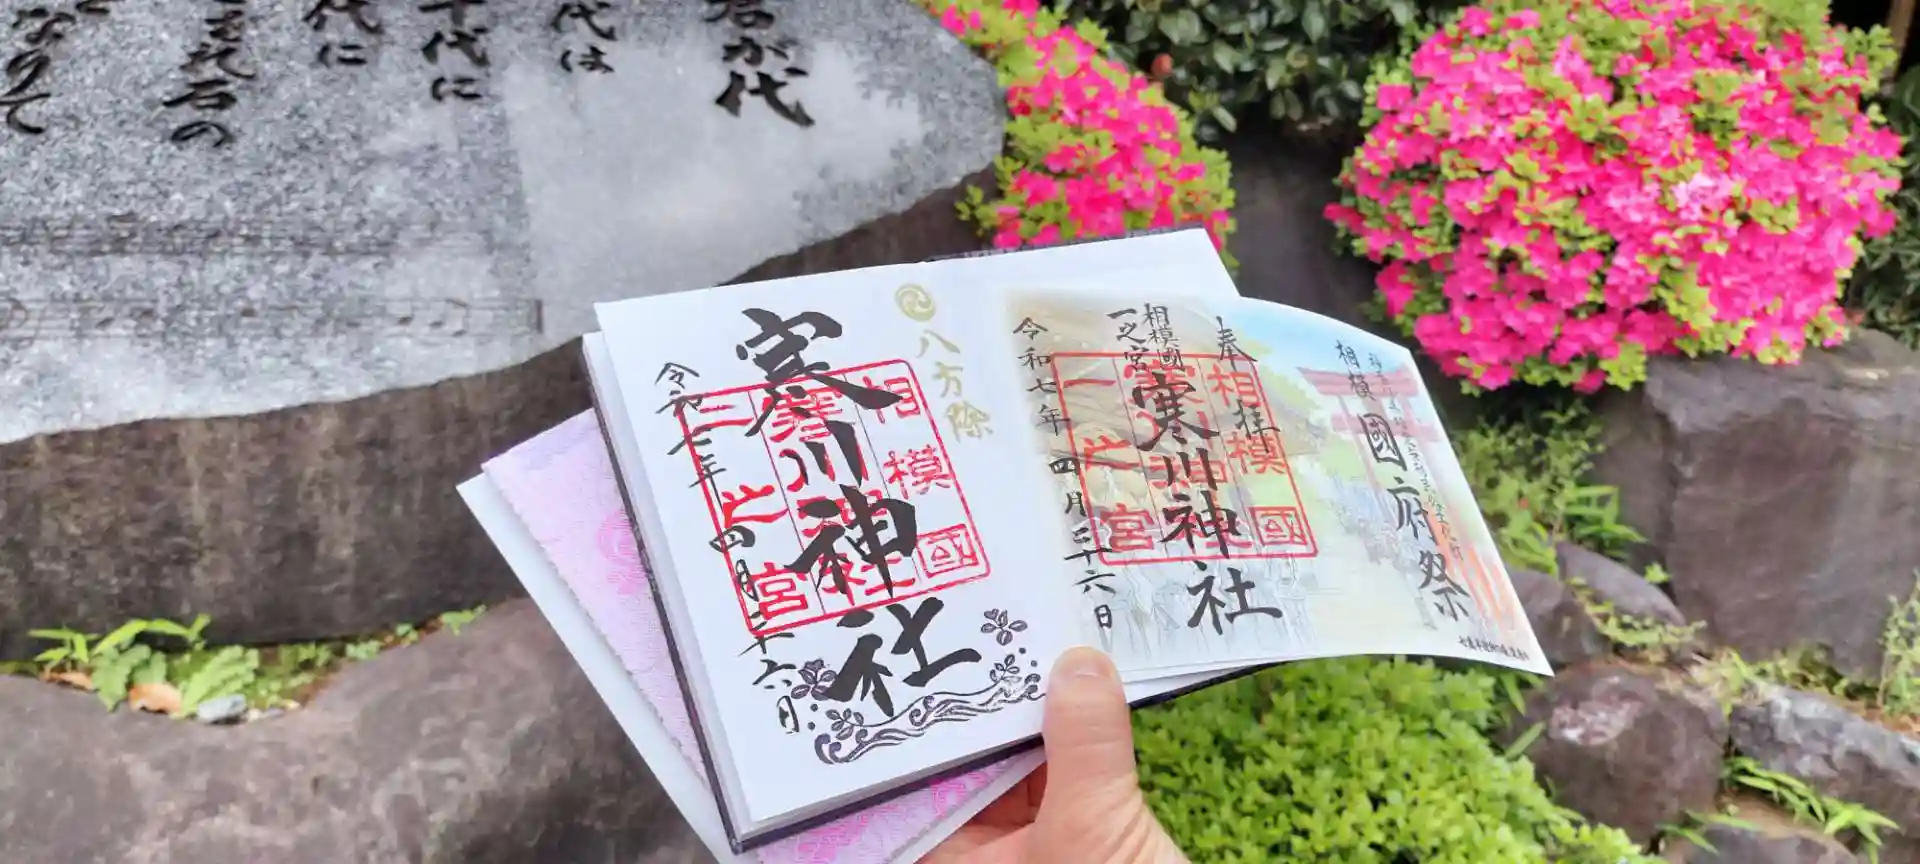 君が代
代は
千代に
代に
さざれ石の
なりて
八方除
寒川神社
相模國
寒川神社
一之宮
令和七年四月二十六日
相模
國府祭
奉拝
相模國
一之宮
寒川神社
相模國
一之宮
令和七年四月二十六日